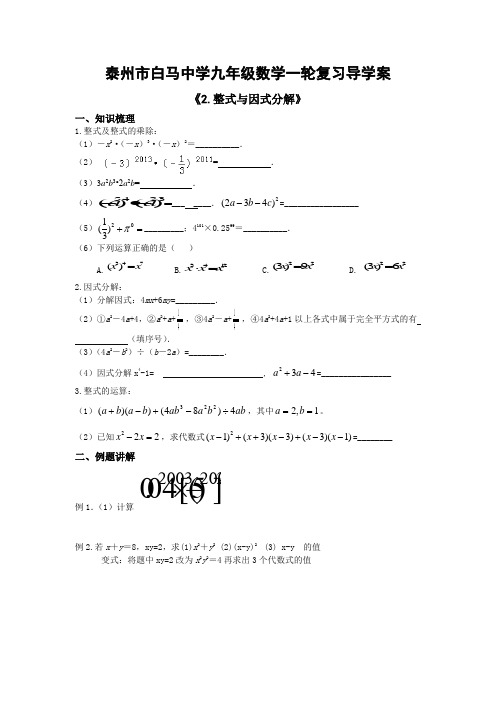 泰州市白马中学九年级数学一轮复习导学案
《2.整式与因式分解》
一、知识梳理
1.整式及整式的乘除:
(1)－x²·(－x)³·(－x)²＝__________.
(2) (－3)²⁰¹³•(－1/3)²⁰¹¹= .
(3)3a²b³•2a²b= .
(4) ________. (2a－3b－4c)²=_________________
(5) (1/3)²＋π⁰＝_________;4¹⁰¹×0.25⁹⁹＝__________.
(6)下列运算正确的是( )
A. (x³)⁴＝x⁷ B. C. (3x)²＝9x² D. (3x)²＝6x²
2.因式分解:
(1)分解因式:4mx+6my=_________.
(2)①a²－4a+4,②a²+a+ ,③4a²－a+ ,④4a²+4a+1以上各式中属于完全平方式的有
(填序号).
(3)(4a²－b²)÷(b－2a)=________.
(4)因式分解 x⁴-1= . a²＋3a－4=________________
3.整式的运算:
(1)(a＋b)(a－b)＋(4ab³－8a²b²)÷4ab,其中a＝2,b＝1。
(2)已知x²－2x＝2,求代数式(x－1)²＋(x＋3)(x－3)＋(x－3)(x－1)=________
二、例题讲解
例1.(1)计算
例2.若x＋y＝8,xy=2,求(1)x²＋y² (2)(x-y)² (3) x-y 的值
变式:将题中xy=2改为x²y²＝4再求出3个代数式的值